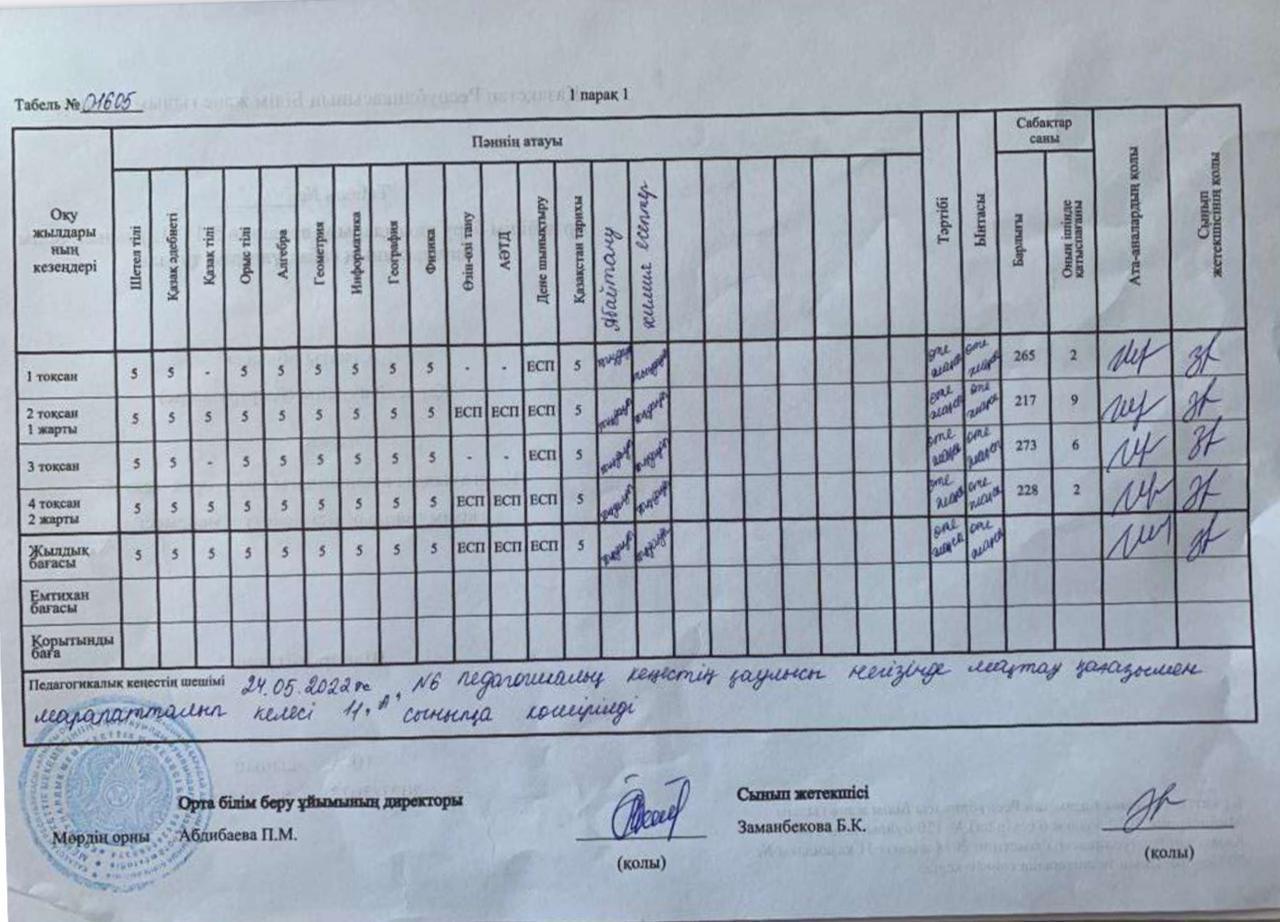 Табель № 01605
1 парақ 1
Оқу жылдары ның кезеңдері
Пәннің атауы
Тәртібі
Ынтасы
Сабақтар саны
Ата-аналардың қолы
Сынып жетекшісінің қолы
Шетел тілі
Қазақ әдебиеті
Қазақ тілі
Орыс тілі
Алгебра
Геометрия
Информатика
География
Физика
Өзін-өзі тану
АӘТД
Дене шынықтыру
Қазақстан тарихы
Абайтану
есептер
Барлығы
Оның ішінде қатыспағаны
1 тоқсан 5 5 - 5 5 5 5 5 5 - - ЕСП 5 өте жақсы өте жақсы 265 2
2 тоқсан 1 жарты 5 5 5 5 5 5 5 5 5 ЕСП ЕСП ЕСП 5 өте жақсы өте жақсы 217 9
3 тоқсан 5 5 - 5 5 5 5 5 5 - - ЕСП 5 өте жақсы өте жақсы 273 6
4 тоқсан 2 жарты 5 5 5 5 5 5 5 5 5 ЕСП ЕСП ЕСП 5 өте жақсы өте жақсы 228 2
Жылдық бағасы 5 5 5 5 5 5 5 5 5 ЕСП ЕСП ЕСП 5 өте жақсы өте жақсы
Емтихан бағасы
Қорытынды баға
Педагогикалық кеңестің шешімі 24.05.2022 №6 педагогикалық кеңестің қаулысы негізінде мақтау қағазымен
марапатталып келесі 11 "А" сыныпқа көшірілді
Орта білім беру ұйымының директоры
Сынып жетекшісі
Мөрдің орны Абдибаева П.М.
Заманбекова Б.К.
(қолы)
(қолы)